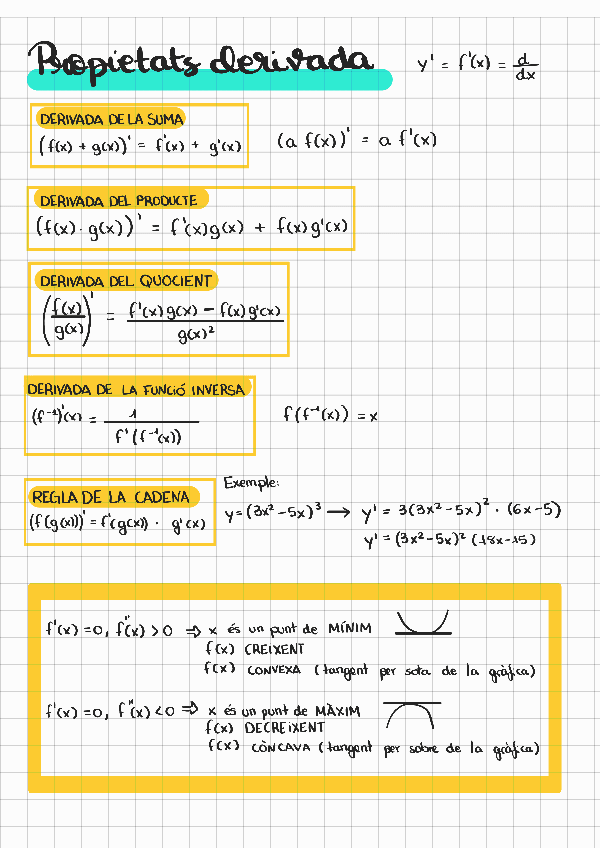 Propietats derivada
y' = f'(x) = d/dx
DERIVADA DE LA SUMA
(f(x) + g(x))' = f'(x) + g'(x)
(a f(x))' = a f'(x)
DERIVADA DEL PRODUCTE
(f(x) · g(x))' = f'(x)g(x) + f(x)g'(x)
DERIVADA DEL QUOCIENT
(f(x)/g(x))' = f'(x)g(x) − f(x)g'(x) / g(x)²
DERIVADA DE LA FUNCIÓ INVERSA
(f⁻¹)'(x) = 1 / f'(f⁻¹(x))
f(f⁻¹(x)) = x
REGLA DE LA CADENA
(f(g(x)))' = f'(g(x)) · g'(x)
Exemple:
y = (3x² − 5x)³ → y' = 3(3x² − 5x)² · (6x − 5)
y' = (3x² − 5x)² (18x − 15)
f'(x) = 0, f''(x) > 0 ⇒ x és un punt de MÍNIM
f(x) CREIXENT
f(x) CONVEXA (tangent per sota de la gràfica)
f'(x) = 0, f''(x) < 0 ⇒ x és un punt de MÀXIM
f(x) DECREIXENT
f(x) CÒNCAVA (tangent per sobre de la gràfica)